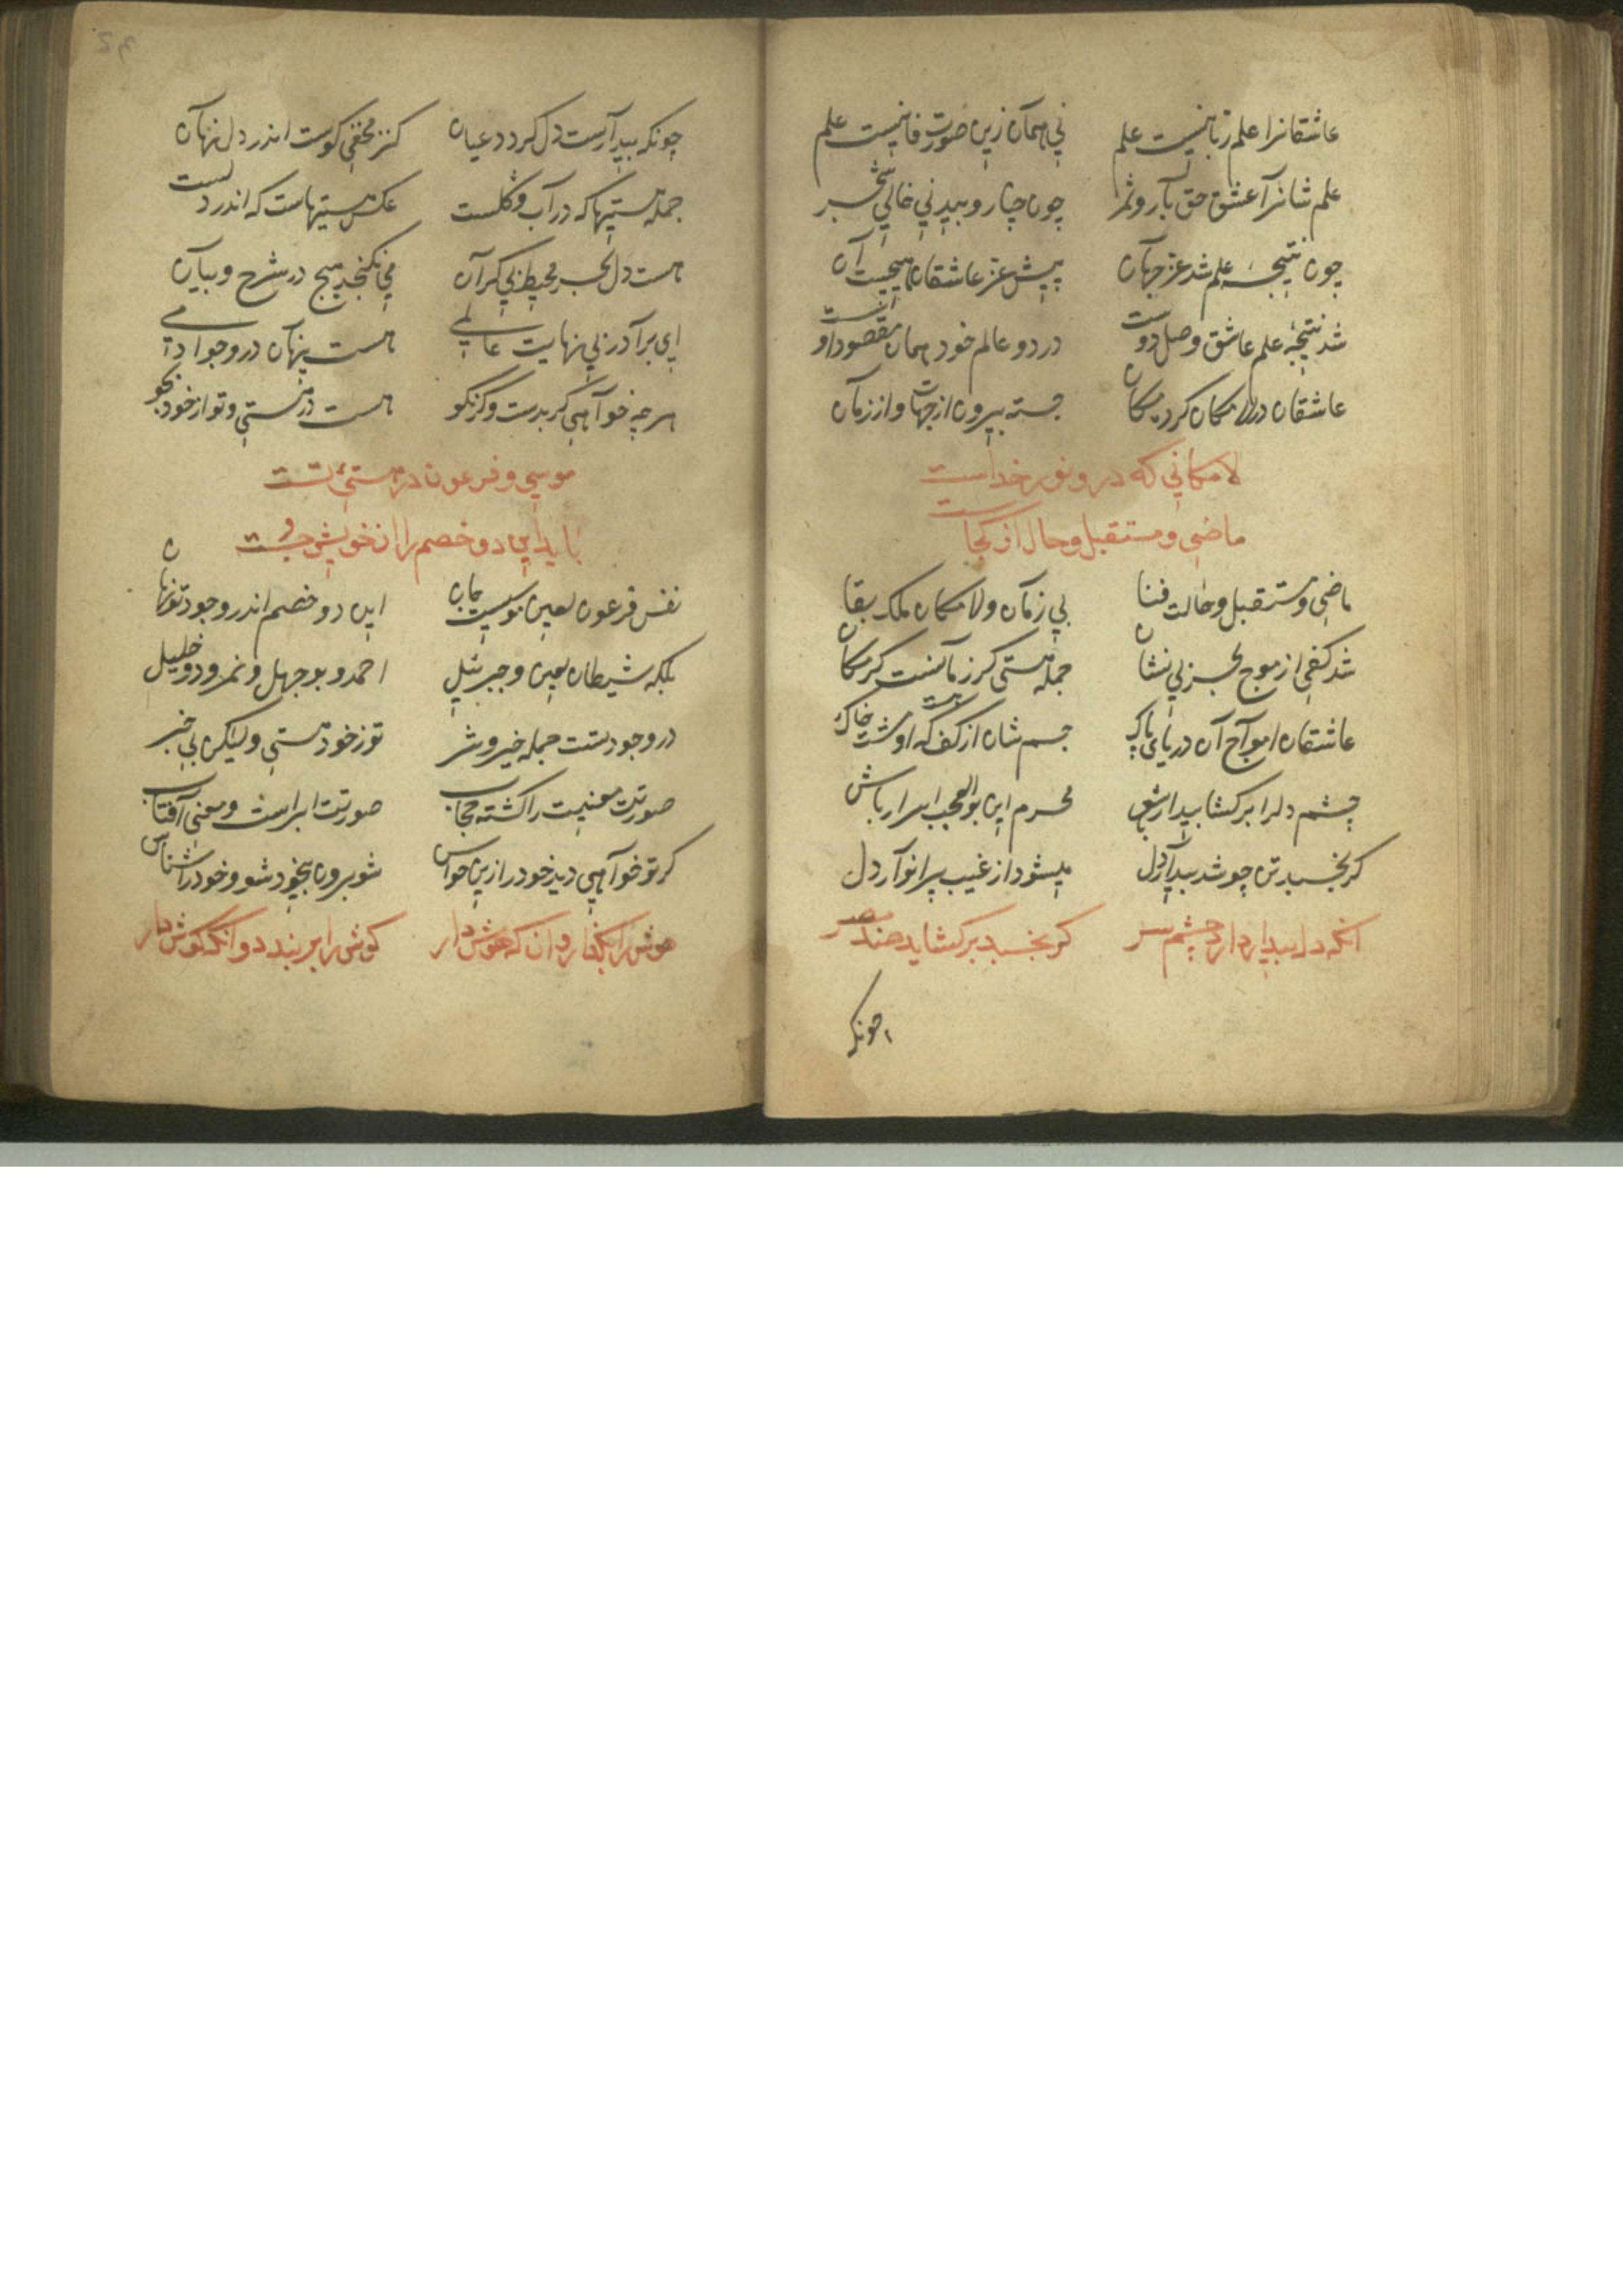 عاشقانرا علم ربانیست علم نی همان زین صورت فانیست علم
علم شانرا عشق حق بار و ثمر چون چنار و بید نی خالی شجر
چون نتیجه علم شد عز جهان پیش عز عاشقان هیچیست آن
شد نتیجه علم عاشق وصل دوست در دو عالم خود همان مقصود اوست
عاشقان در لامکان کرده مکان جسته بیرون از جهات و از زمان
لامکانی که درو نور خداست
ماضی و مستقبل و حال از کجاست
ماضی و مستقبل و حالت فنا بی زمان و لامکان ملک بقا
شد کفی از موج بحر بی نشان جمله هستی کر زمانست کر مکان
عاشقان امواج آن دریای پاک جسم شان از کف که او هست خاک
چشم دلرا برکشا بیدار باش محرم این بوالعجب اسرار باش
کر بخسبد تن چو شد بیدار دل میشود از غیب پر انوار دل
انکه دل بیدار دارد چشم سر کر بخسبد برکشاید صد بصر
چونکه
چونکه بیدارست دل کردد عیان کنز مخفی کوست اندر دل نهان
جمله هستیها که در آب و کلست عکس هستیهاست که اندر دلست
هست دل بحر محیط بی کران می نکنجد هیچ در شرح و بیان
ای برادر بی نهایت عالمی هست پنهان در وجود آدمی
هر چه خواهی کر بدست و کر نکو هست در هستی و تو از خود بجو
موسی و فرعون در هستی تست
باید این دو خصم را از خویش جست
نفس فرعون لعین موسیست جان این دو خصم اندر وجود تو نهان
بلکه شیطان لعین و جبرئیل احمد و بوجهل و نمرود و خلیل
در وجود تست جمله خیر و شر تو ز خود هستی ولیکن بی خبر
صورتت معنیت را کشته حجاب صورتت ابر است و معنی آفتاب
کر تو خواهی دید خود را زین حواس شو برون بیخود شو و خود را شناس
هوش را بکذار و ان که هوش دار کوش را بربند و انکه کوش دار